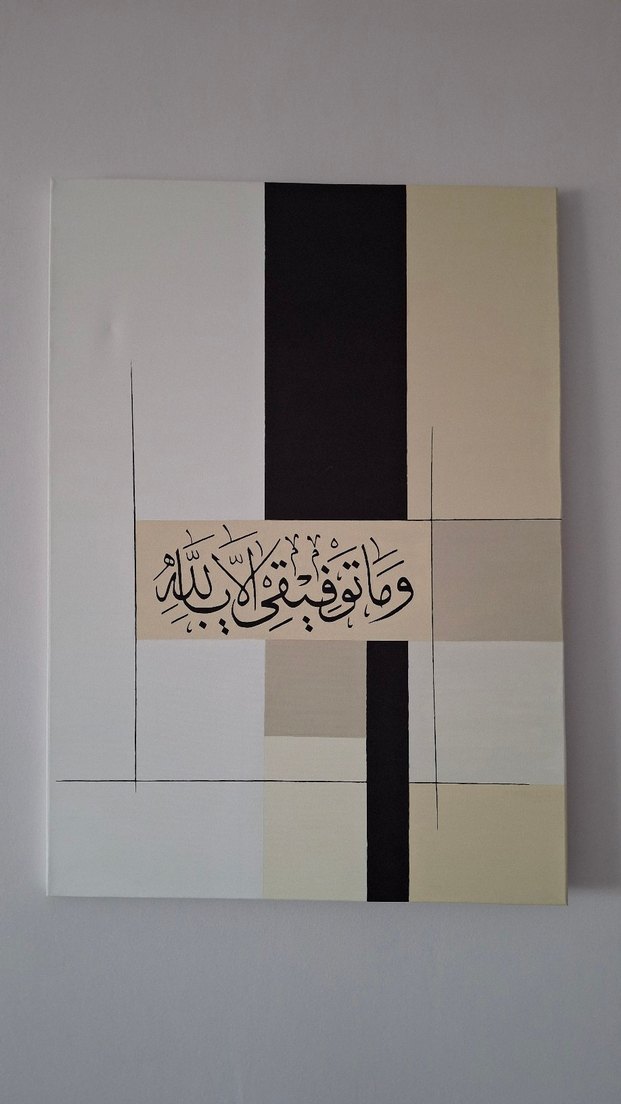 وَمَا تَوْفِيْقِى اِلَّا بِاللّٰهِ